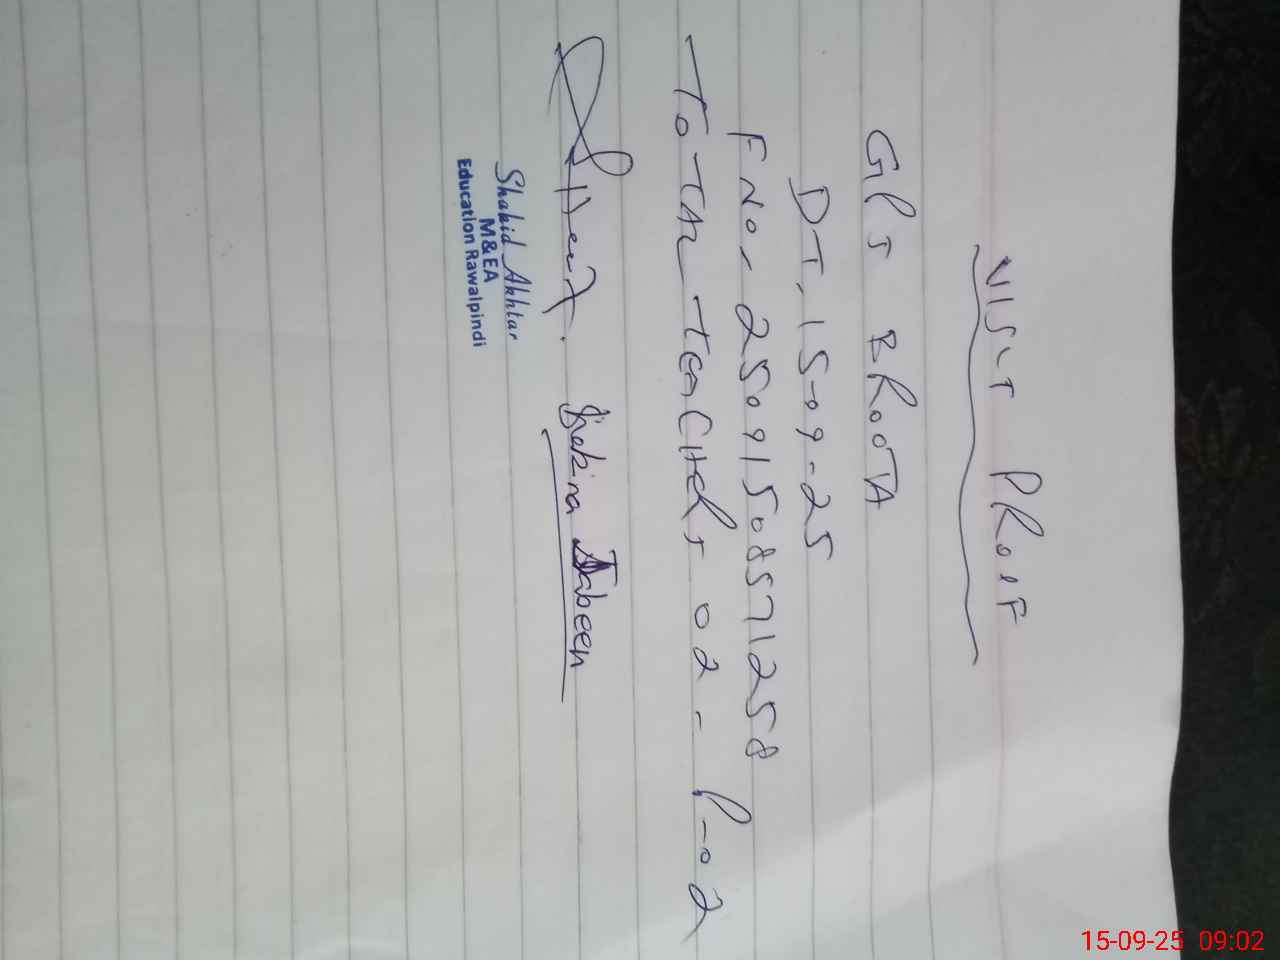 VISIT PROOF
GPS BROOTA
DT. 15-09-25
F No. 25091508571258
TOTAL TEACHERS 02 - P-02
Sakina Jabeen
Shahid Akhtar
M & EA
Education Rawalpindi
15-09-25 09:02